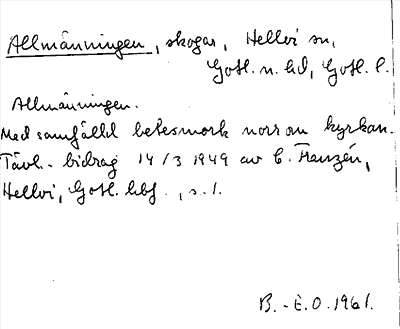 Allmänningen, skogar, Hellvi sn,
Gotl. n. hd, Gotl. l.
Allmänningen.
Med samfälld betesmark norr om kyrkan.
Tävl.- bidrag 14/3 1949 av C. Franzén,
Hellvi, Gotl. hbf., s. 1.
B.-E.O. 1961.